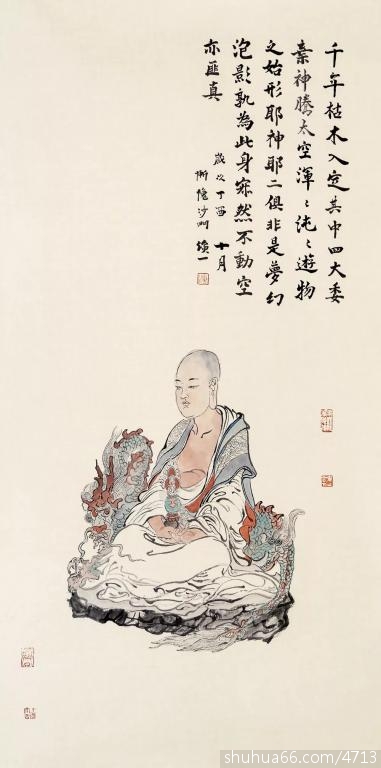 千年枯木入定其中四大委
棄神騰太空渾〻沌〻遊物
之始形耶神耶二俱非是夢幻
泡影孰為此身寂然不動空
亦匪真
歲次丁酉 十月
沙門 一
shuhua66.com/4713